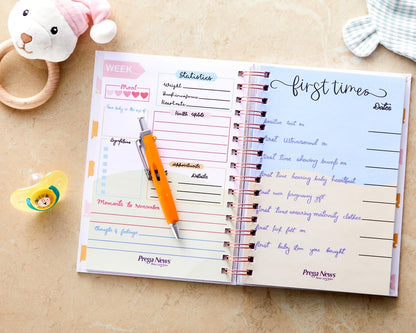 WEEK
Mood
Your baby is the size of
Symptoms
Statistics
Weight
Heart rate
Health Update
Appointments
Details
Moments to remember
thoughts & feelings
Prega News
first times
Dates
positive test on
first Ultrasound on
first time showing bump on
first time hearing baby heartbeat
first ever pregnancy gift
first time wearing maternity clothes
first kick felt on
first baby item you bought
Prega News